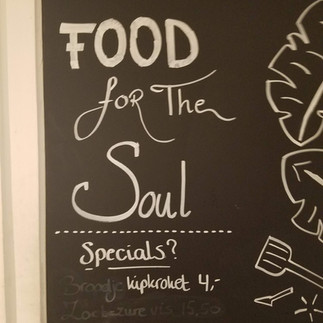 FOOD
for The
Soul
Specials?
Broodje kipkroket 4,-
vis 15,50